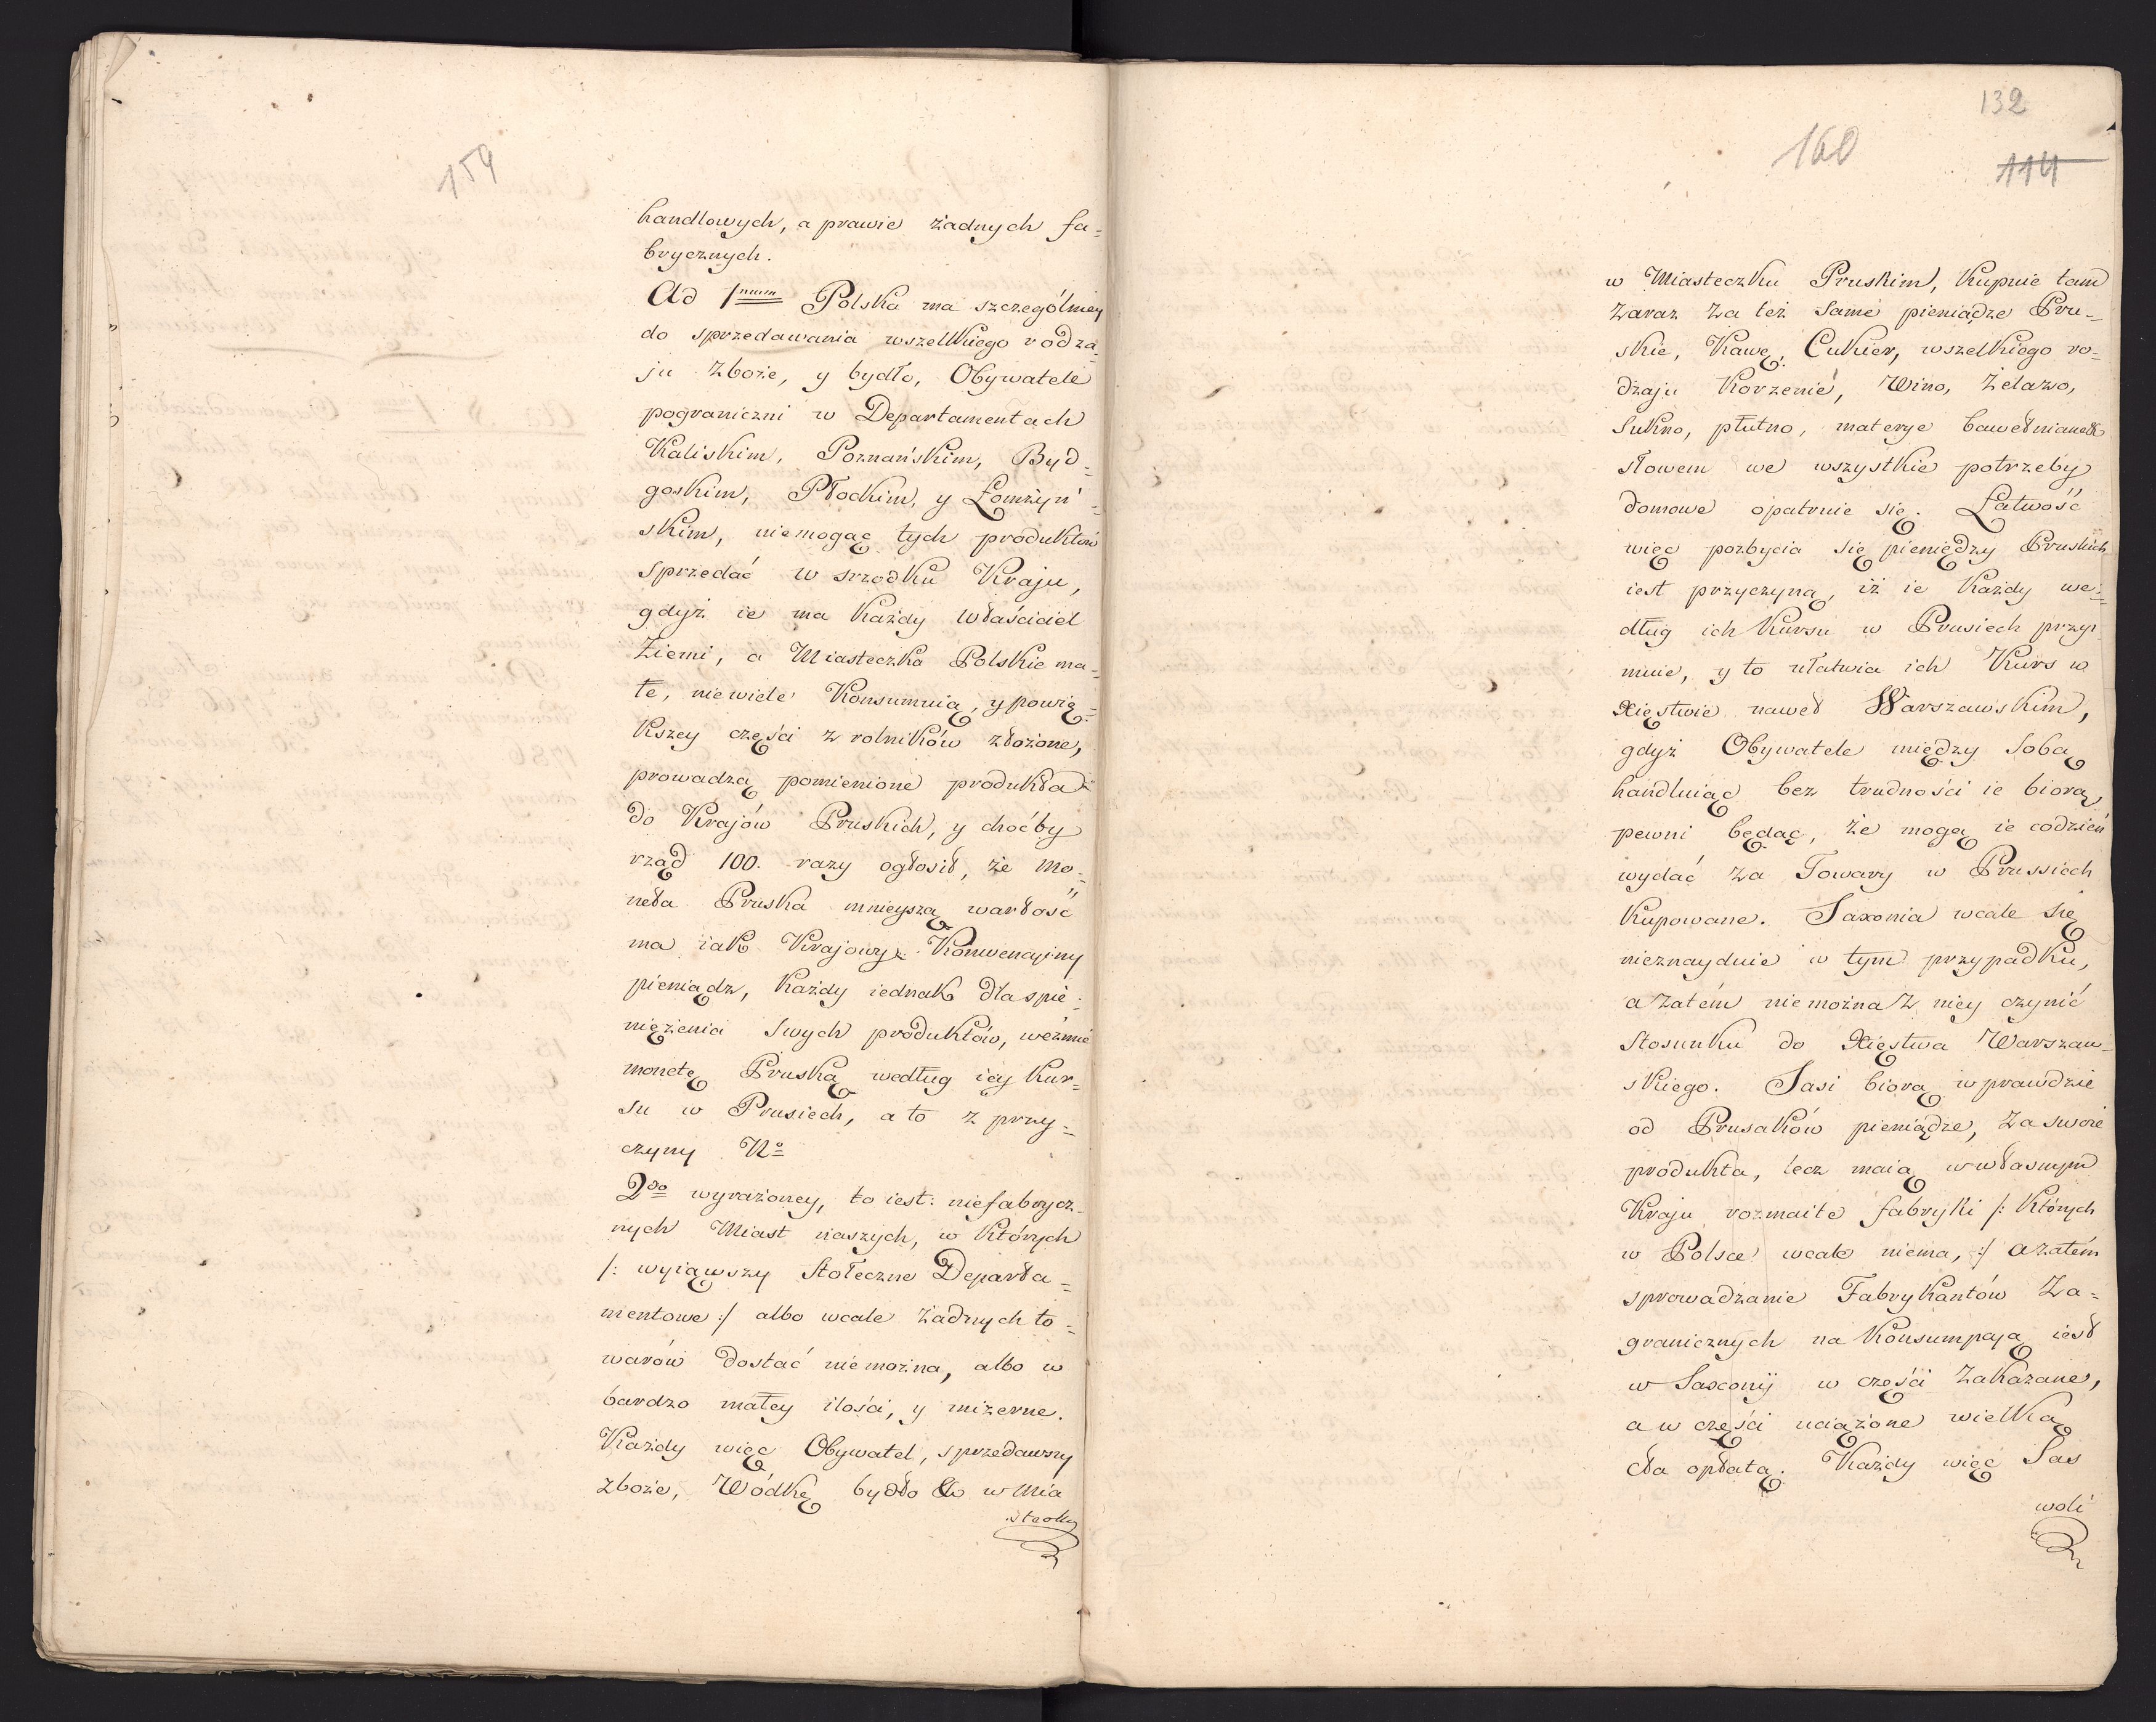 159
handlowych, a prawie żadnych fa-
brycznych.
Ad 1mum Polska ma szczególniey
do sprzedawania wszelkiego rodza-
ju Zboże, y bydło, Obywatele
pograniczni w Departamentach
Kaliskim, Poznańskim, Byd-
goskim, Płockim, y Łomżyń-
skim, niemogąc tych produktów
sprzedać w srzodku Kraju,
gdyż ie ma każdy właściciel
Ziemi, a Miasteczka Polskie ma-
łe, niewiele Konsumuią, y powię-
kszey części z rolników złożone,
prowadzą pomienione produkta
do Krajów Pruskich, y choćby
rząd 100. razy ogłosił, że Mo-
neta Pruska mnieyszą wartość
ma iak Krajowy Konwencyiny
pieniądz, każdy iednak dla spie-
niężenia swych produktów, weźmie
monetę Pruską według iey kur-
su w Prusiech, a to z przy-
czyny No
2do wyrażoney, to iest: niefabrycz-
nych Miast naszych, w których
/: wyiąwszy Stołeczne Departa-
mentowe :/ albo wcale żadnych to-
warów dostać niemożna, albo w
bardzo małey ilości, y mizerne.
Każdy więc Obywatel, sprzedawszy
zboże, Wódkę bydło &c w Mia
steczku
132
160
114
w Miasteczku Pruskim, kupuie tam
zaraz za też same pieniądze Pru-
skie, Kawę, Cukier, wszelkiego ro-
dzaju Korzenie, Wino, Żelazo,
Sukno, płutno, materye bawełniane &c
słowem we wszystkie potrzeby
domowe opatruie się. Łatwość
więc pozbycia się pieniędzy Pruskich
iest przyczyną, iż ie każdy we-
dług ich Kursu w Prusiech przy-
muie, y to ułatwia ich Kurs w
Xięstwie nawet Warszawskim,
gdyż Obywatele między sobą
handluiąc bez trudności ie biorą,
pewni będąc, że mogą ie codzień
wydać za Towary w Prussiech
kupowane. Saxonia wcale się
nieznayduie w tym przypadku,
a zatém niemożna z niey czynić
stosunku do Xięstwa Warszaw-
skiego. Sasi biorą wprawdzie
od Prusaków pieniądze, za swoie
produkta, lecz maią w własnym
Kraju rozmaite fabryki /: których
w Polsce wcale niema, :/ a zatém
sprowadzanie Fabrykantów Za-
granicznych na Konsumpcyą iest
w Saxonij w części Zakazane,
a w części uciążone wielką
cła opłatą. Każdy więc Sas
woli